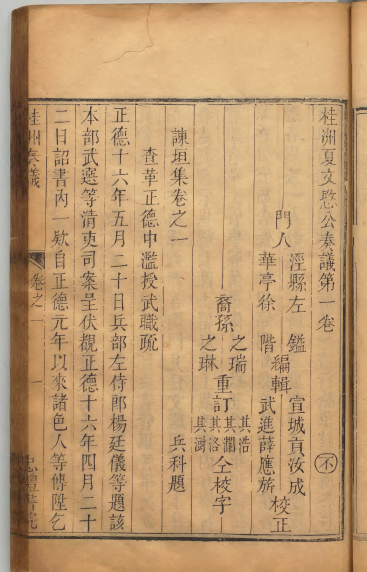 桂洲夏文愍公奏議第一卷
不
門人
涇縣左 鑑
華亭徐 階
編輯
宣城貢汝成
武進薛應旂
校正
裔孫
之瑞
之琳
重訂
其浩
其瀾
其洛
其澍
仝校字
諫垣集卷之一
兵科題
查革正德中濫授武職疏
正德十六年五月二十日兵部左侍郎楊廷儀等題該
本部武選等清吏司案呈伏覩正德十六年四月二十
二日詔書內一欵自正德元年以來諸色人等傳陞乞
桂洲奏議
卷之一
一
忠禮書院